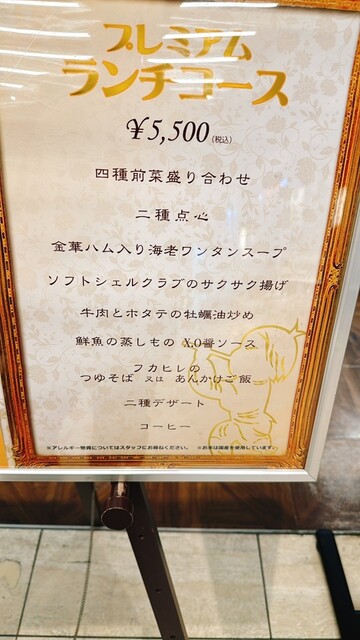 プレミアム
ランチコース
¥5,500(税込)
四種前菜盛り合わせ
二種点心
金華ハム入り海老ワンタンスープ
ソフトシェルクラブのサクサク揚げ
牛肉とホタテの牡蠣油炒め
鮮魚の蒸しもの XO醤ソース
フカヒレの
つゆそば 又は あんかけご飯
二種デザート
コーヒー
※アレルギー物質についてはスタッフにお尋ねください。 ※お米は国産を使用しています。